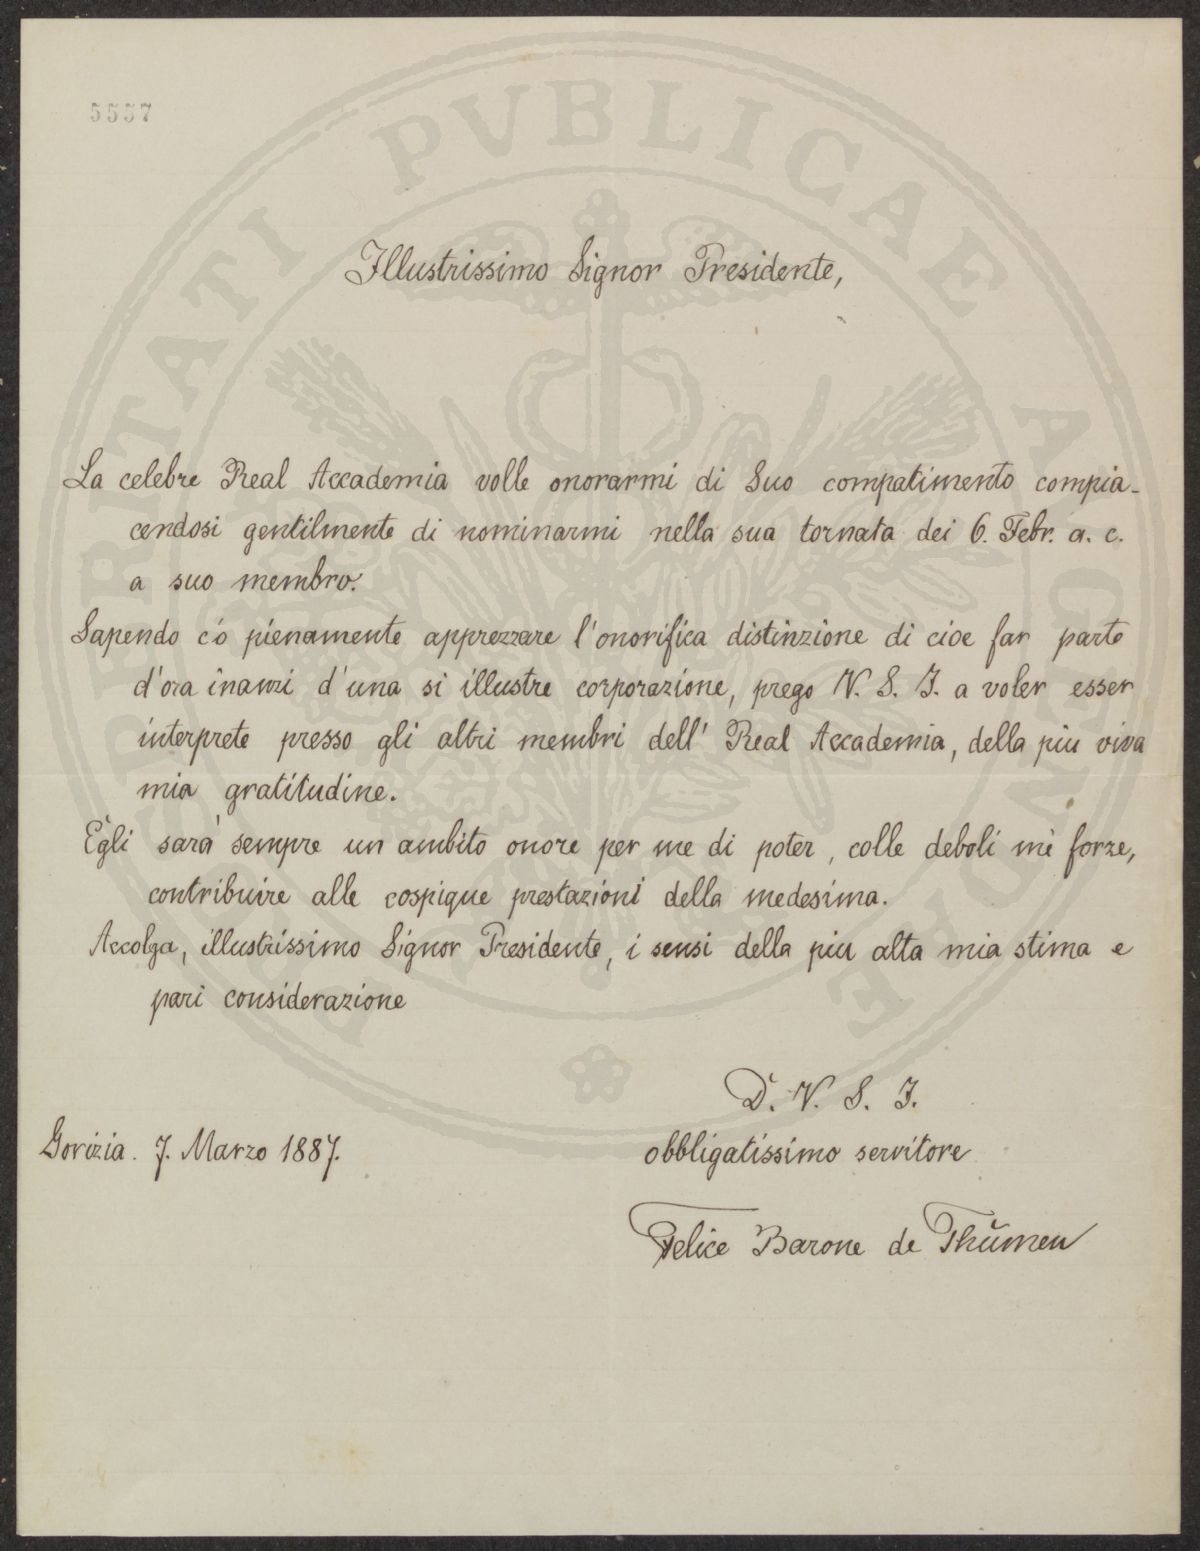 5557
PROSPERITATI PVBLICAE AUGENDAE
Illustrissimo Signor Presidente,
La celebre Real Accademia volle onorarmi di Suo compatimento compia-
cendosi gentilmente di nominarmi nella sua tornata dei 6. Febr. a. c.
a suo membro.
Sapendo c'ò pienamente apprezzare l'onorifica distinzione di cioe far parte
d'ora inanzi d'una si illustre corporazione, prego V. S. I. a voler esser
interprete presso gli altri membri dell' Real Accademia, della piu viva
mia gratitudine.
Egli sarà sempre un ambito onore per me di poter, colle deboli miè forze,
contribuire alle cospique prestazioni della medesima.
Accolga, illustrissimo Signor Presidente, i sensi della piu alta mia stima e
pari considerazione
D. V. S. I.
Gorizia. 7. Marzo 1887.
obbligatissimo servitore
Felice Barone de Thümen